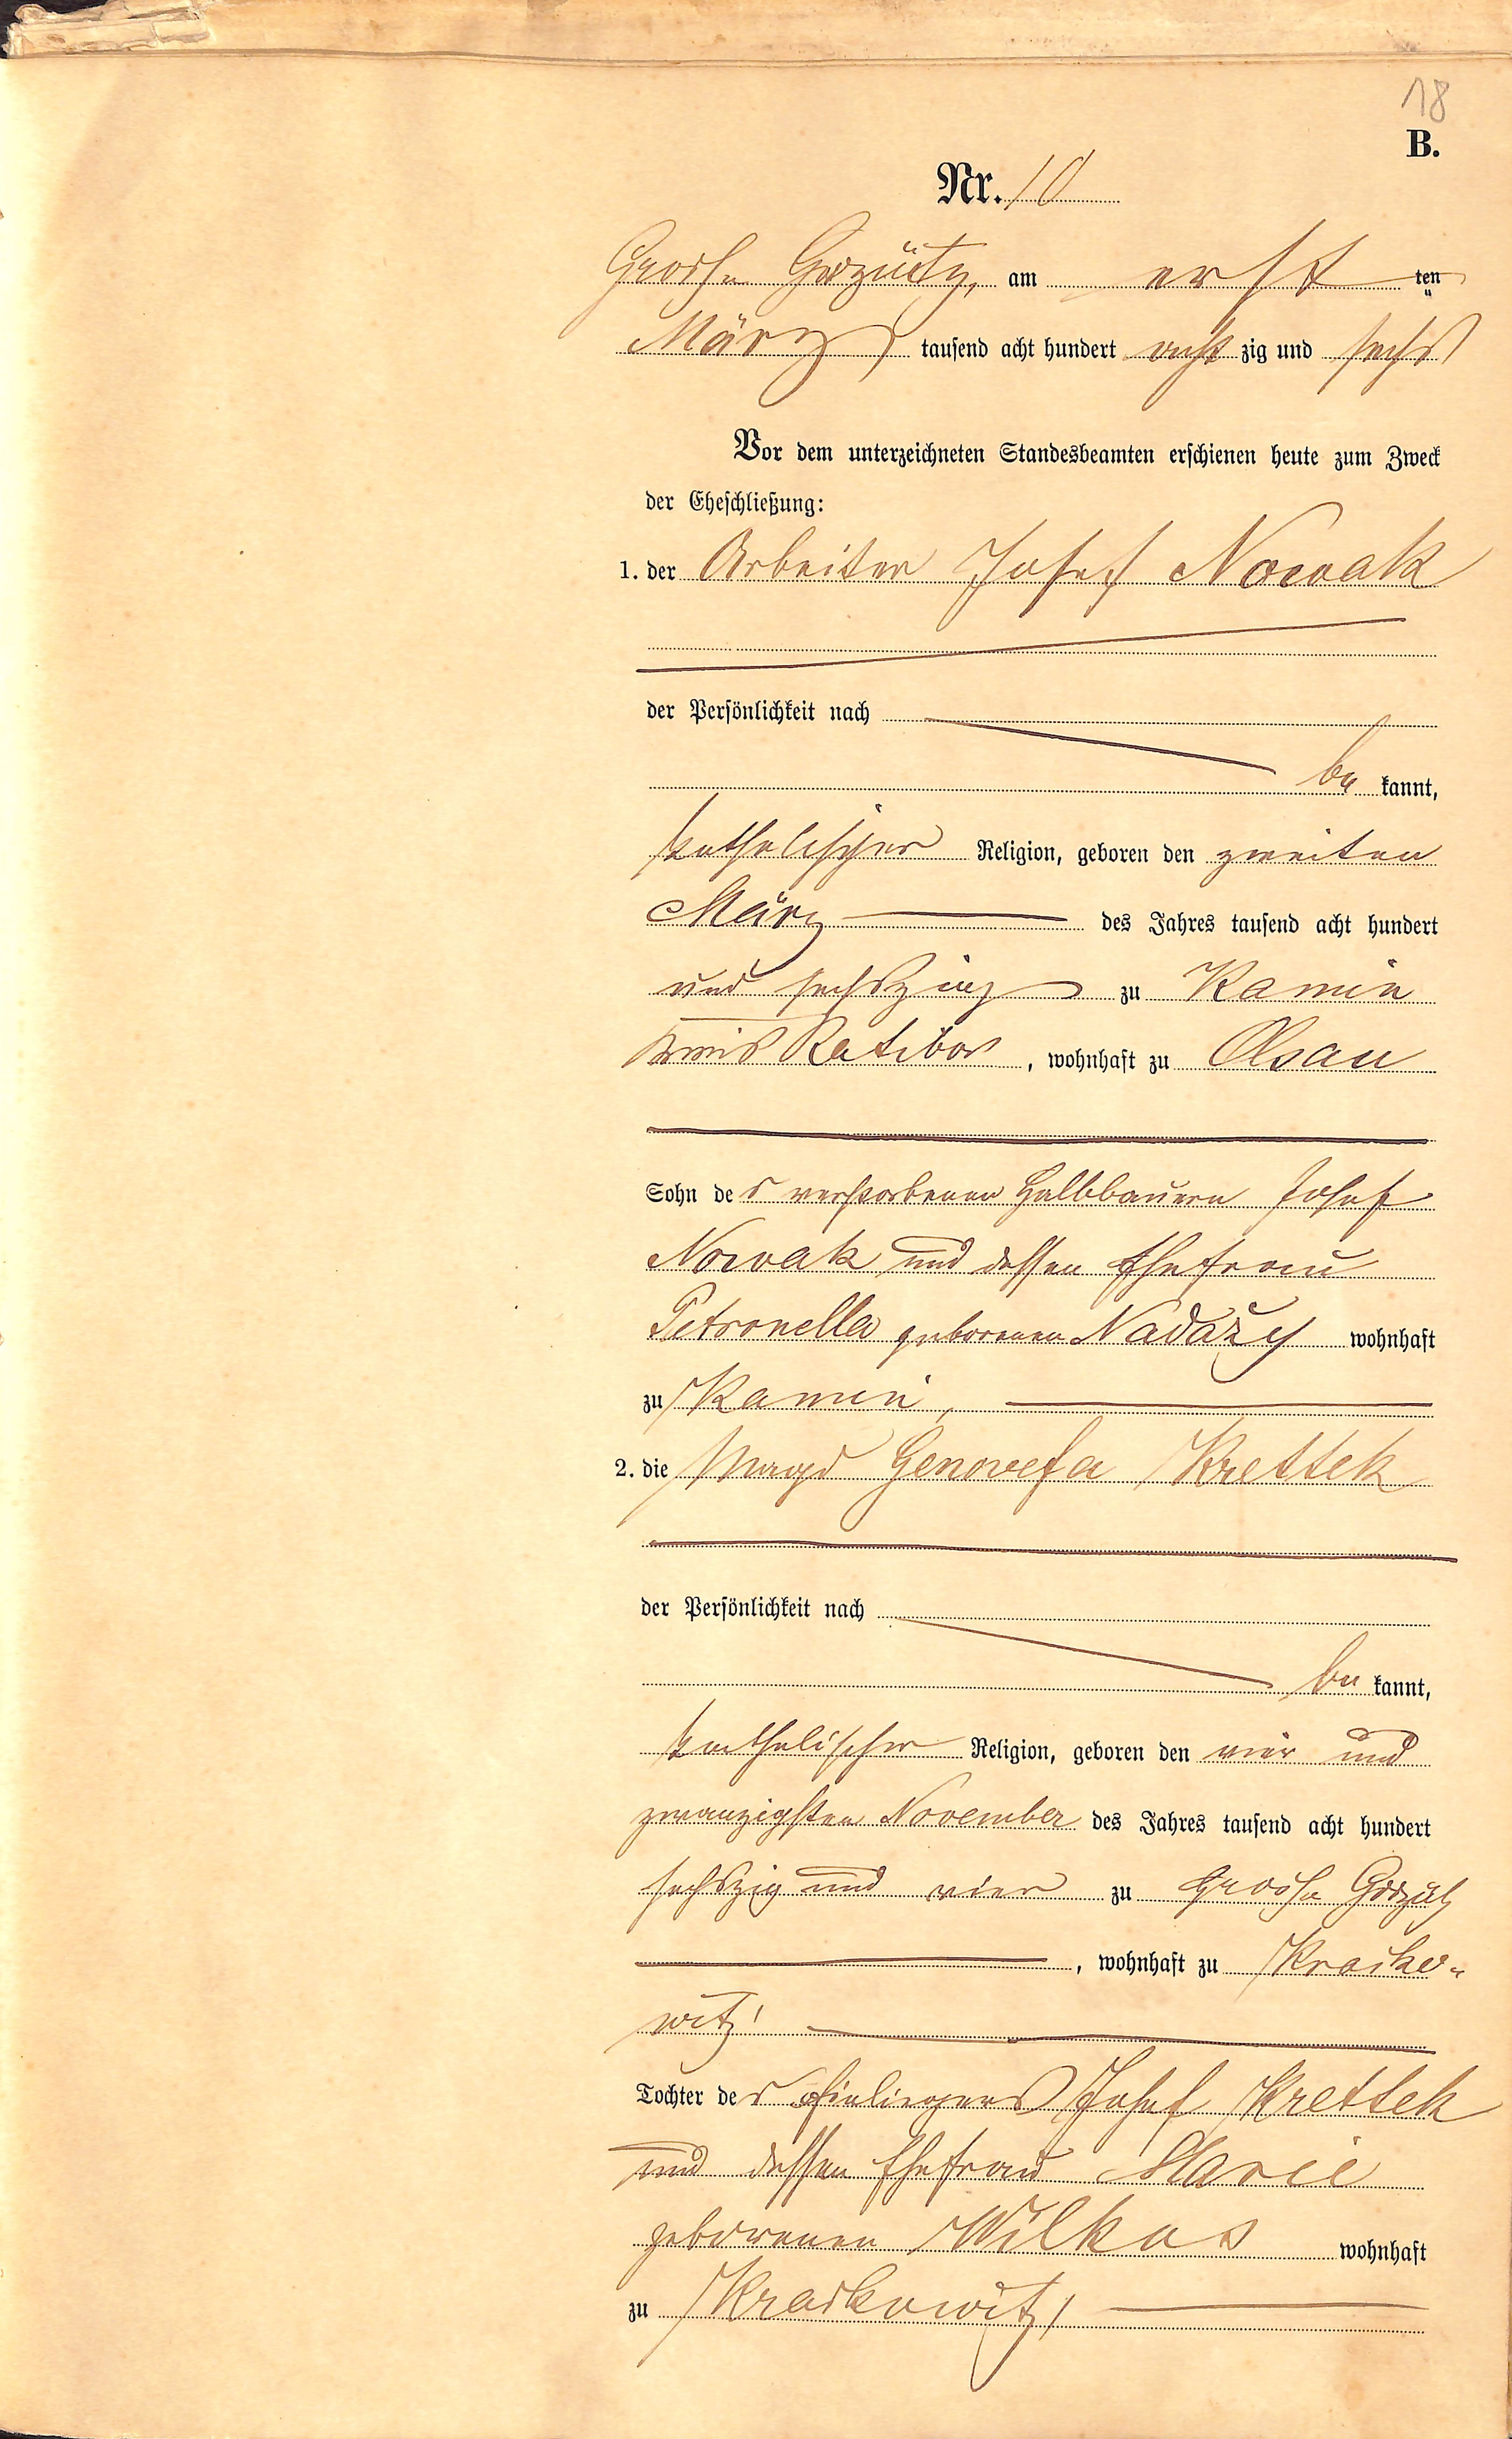 18
B.
Nr. 10
Groß Gorzütz, am erst ten
März tausend acht hundert acht zig und sechs
Vor dem unterzeichneten Standesbeamten erschienen heute zum Zweck
der Eheschließung:
1. der Arbeiter Josef Nowak
der Persönlichkeit nach
be kannt,
katholischer Religion, geboren den zweiten
März des Jahres tausend acht hundert
und sechszig zu Kamin
Kreis Ratibor, wohnhaft zu Olsau
Sohn des verstorbenen Halbbauern Josef
Nowak und dessen Ehefrau
Petronella geborenen wohnhaft
zu Kamin,
2. die Magd Genovefa Krettek
der Persönlichkeit nach
be kannt,
katholischer Religion, geboren den vier und
zwanzigsten November des Jahres tausend acht hundert
sechszig und vier zu Groß Gorzütz
, wohnhaft zu Krasko-
witz
Tochter des Einliegers Josef Krettek
und dessen Ehefrau Marie
geborenen Wilkas wohnhaft
zu Kraskowitz,